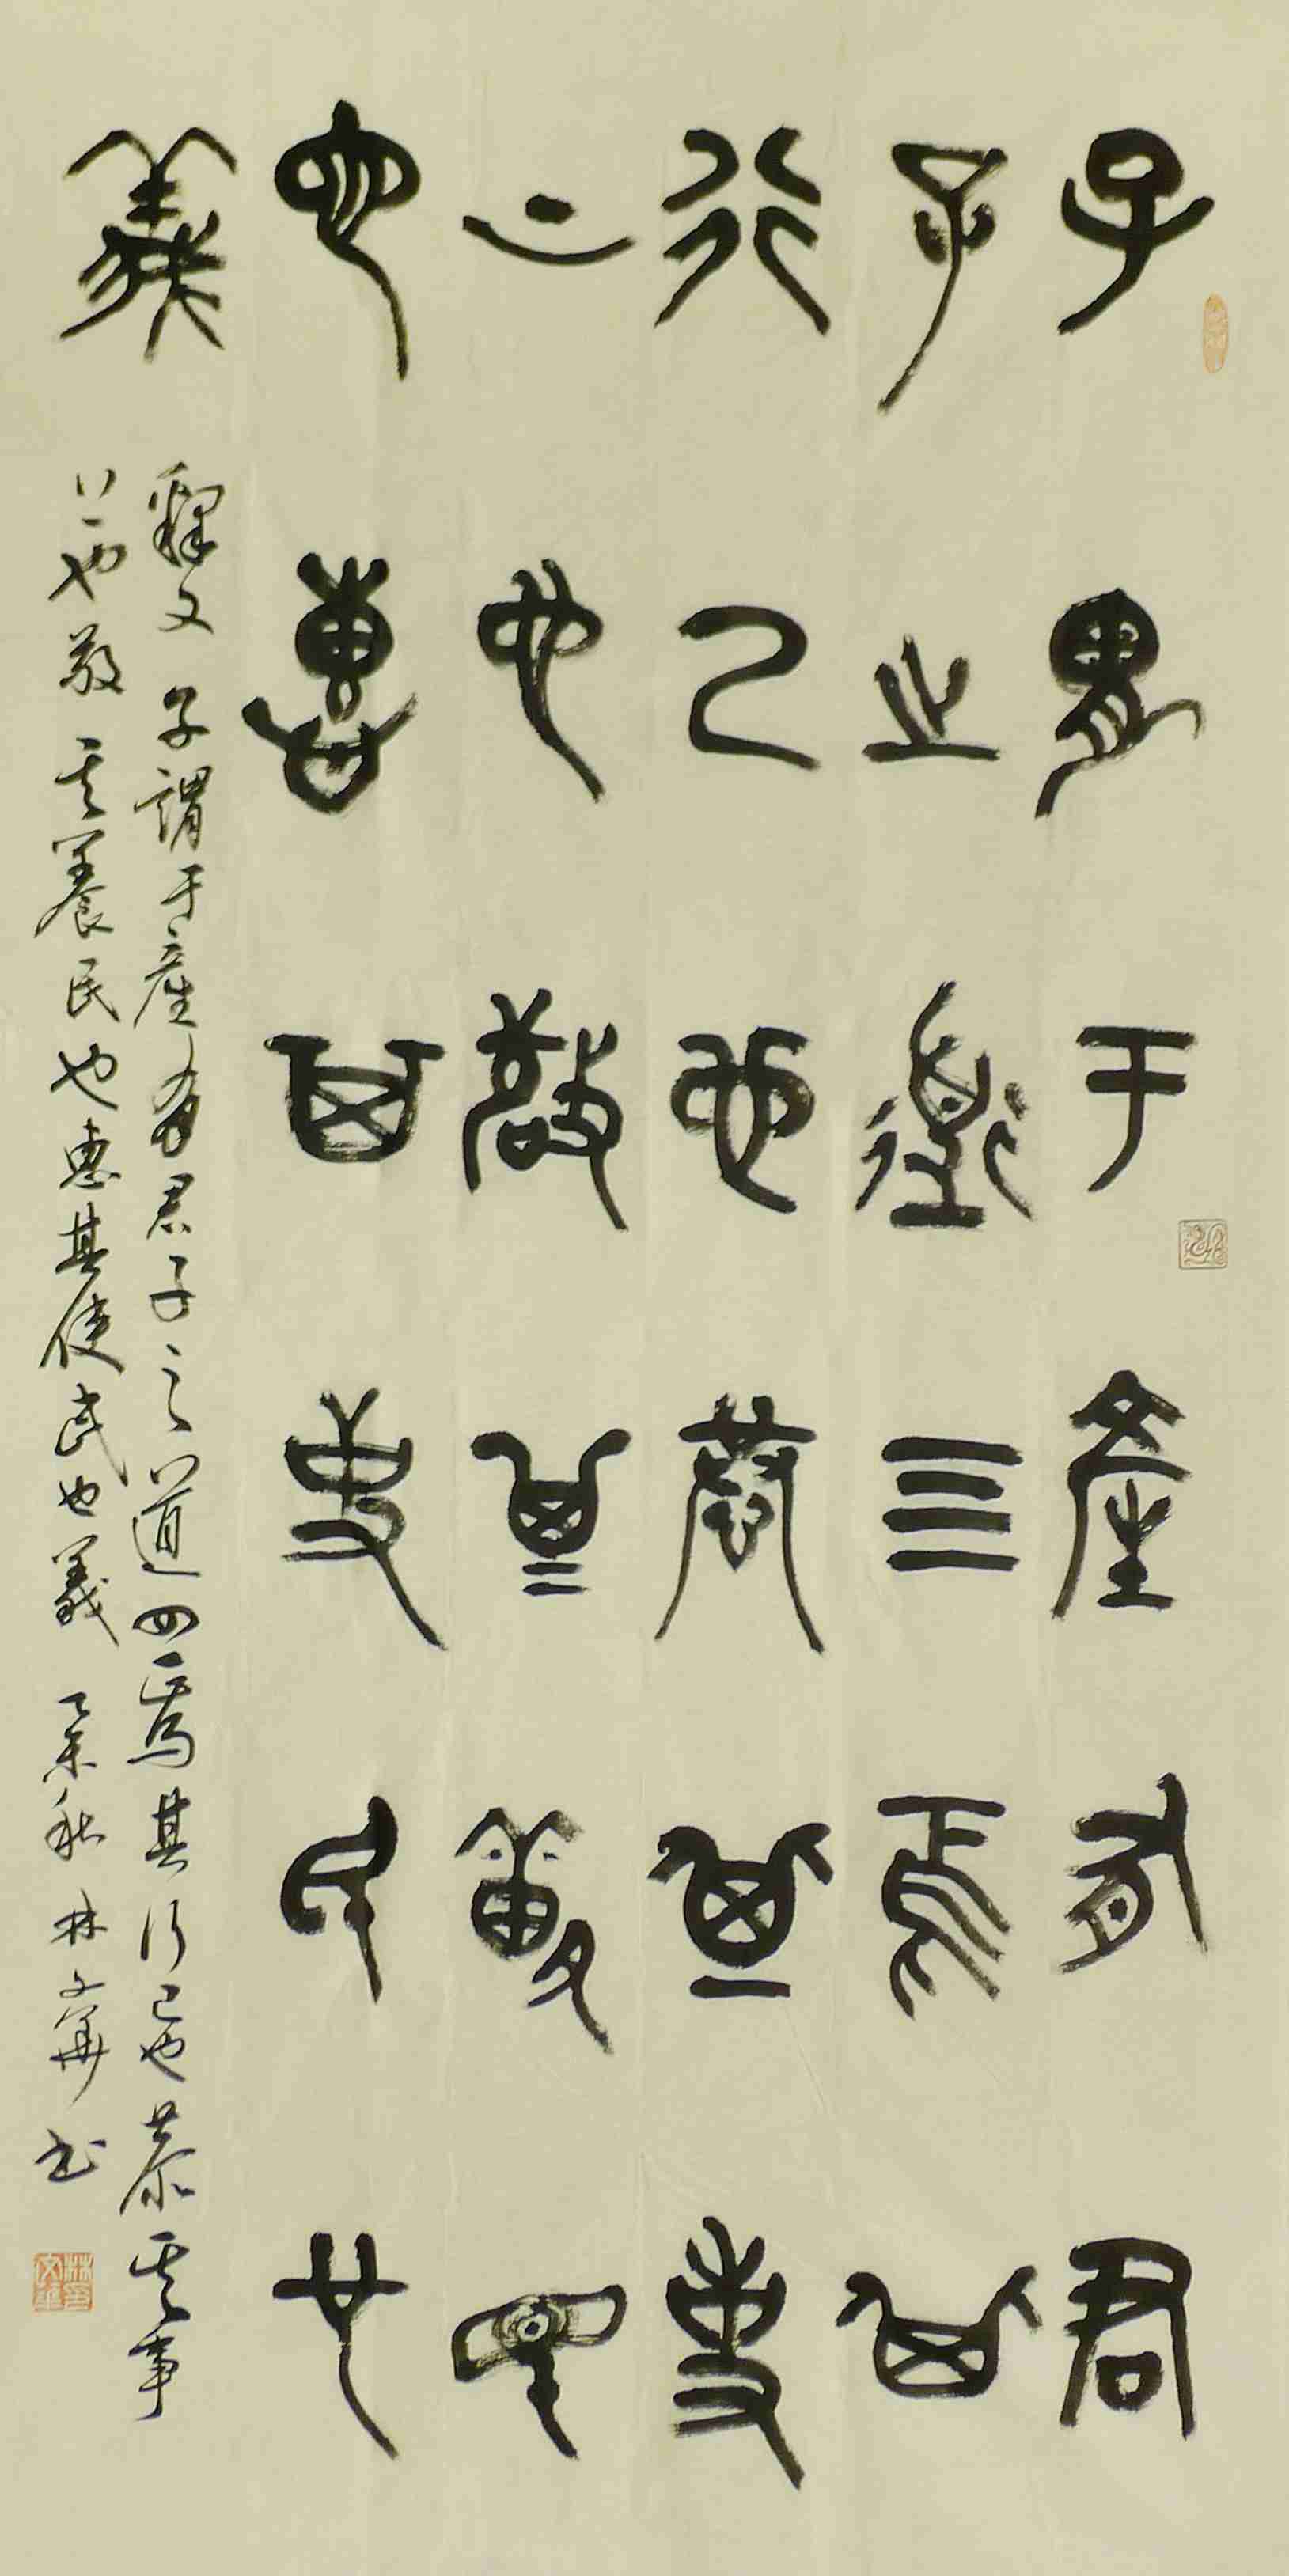 子胃于產有君
子之道四焉其
行己也恭其事
上也敬其養民
也惠其使民也
義
釋文 子謂于產有君子之道四焉其行己也恭其事
上也敬其養民也惠其使民也義 乙未秋 林文華書
林文華印